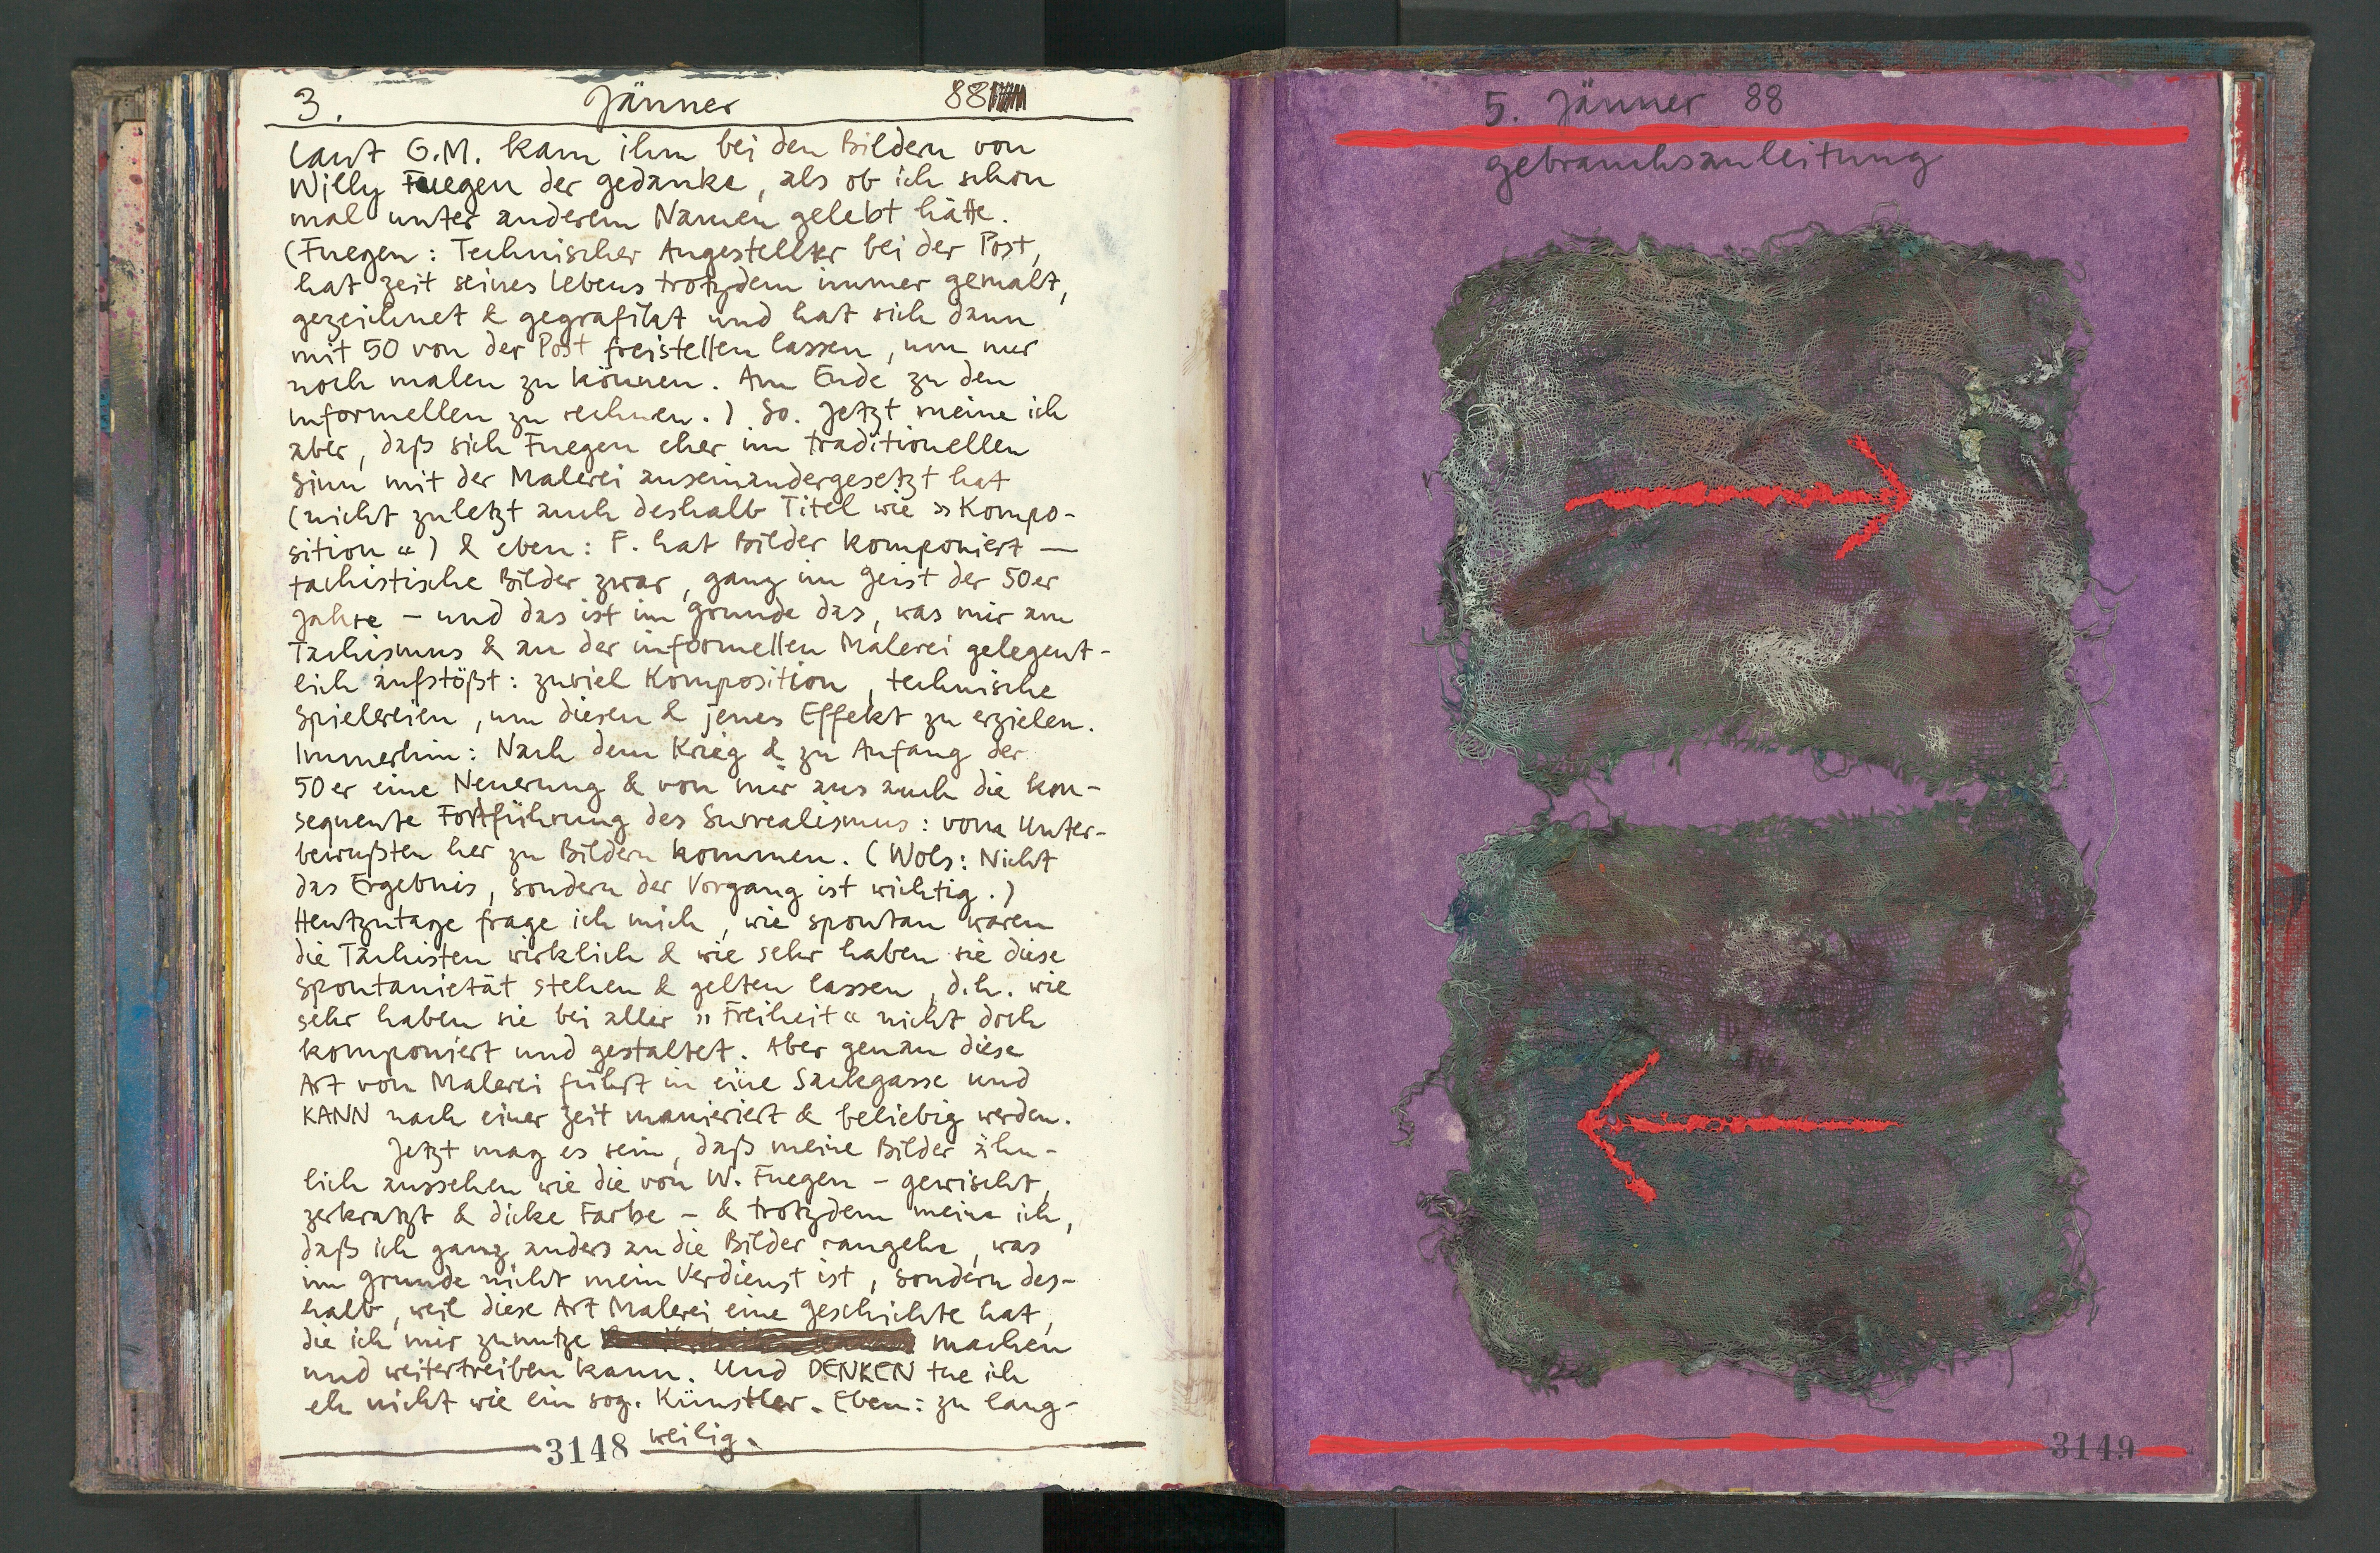 3. Jänner 88
Laut G.M. kam ihm bei den Bildern von
Willy Fuegen der gedanke, als ob ich schon
mal unter anderem Namen gelebt hätte.
(Fuegen: Technischer Angestellter bei der Post,
hat zeit seines Lebens trotzdem immer gemalt,
gezeichnet & gegrafikt und hat sich dann
mit 50 von der Post freistellen lassen, um nur
noch malen zu können. Am Ende zu den
informellen zu rechnen.) So. Jetzt meine ich
aber, daß sich Fuegen eher im traditionellen
Sinn mit der Malerei auseinandergesetzt hat
(nicht zuletzt auch deshalb Titel wie »Kompo-
sition«) & eben: F. hat Bilder komponiert —
tachistische Bilder zwar, ganz im Geist der 50er
Jahre – und das ist im grunde das, was mir am
Tachismus & an der informellen Malerei gelegent-
lich aufstößt: zuviel Komposition, technische
Spielereien, um diesen & jenen Effekt zu erzielen.
Immerhin: Nach dem Krieg & zu Anfang der
50er eine Neuerung & von mir aus auch die kon-
sequente Fortführung des Surrealismus: vom Unter-
bewußten her zu Bildern kommen. (Wols: Nicht
das Ergebnis, sondern der Vorgang ist wichtig.)
Heutzutage frage ich mich, wie spontan waren
die Tachisten wirklich & wie sehr haben sie diese
Spontanietät stehen & gelten lassen, d.h. wie
sehr haben sie bei aller »Freiheit« nicht doch
komponiert und gestaltet. Aber genau diese
Art von Malerei führt in eine Sackgasse und
KANN nach einer Zeit manieriert & beliebig werden.
Jetzt mag es sein, daß meine Bilder ähn-
lich aussehen wie die von W. Fuegen – gewischt,
zerkratzt & dicke Farbe – & trotzdem meine ich,
daß ich ganz anders an die Bilder rangehe, was
im grunde nicht mein Verdienst ist, sondern des-
halb, weil diese Art Malerei eine geschichte hat,
die ich mir zunutze machen
und weitertreiben kann. Und DENKEN tue ich
eh nicht wie ein sog. Künstler. Eben: zu lang-
weilig.
3148
5. Jänner 88
gebrauchsanleitung
3149